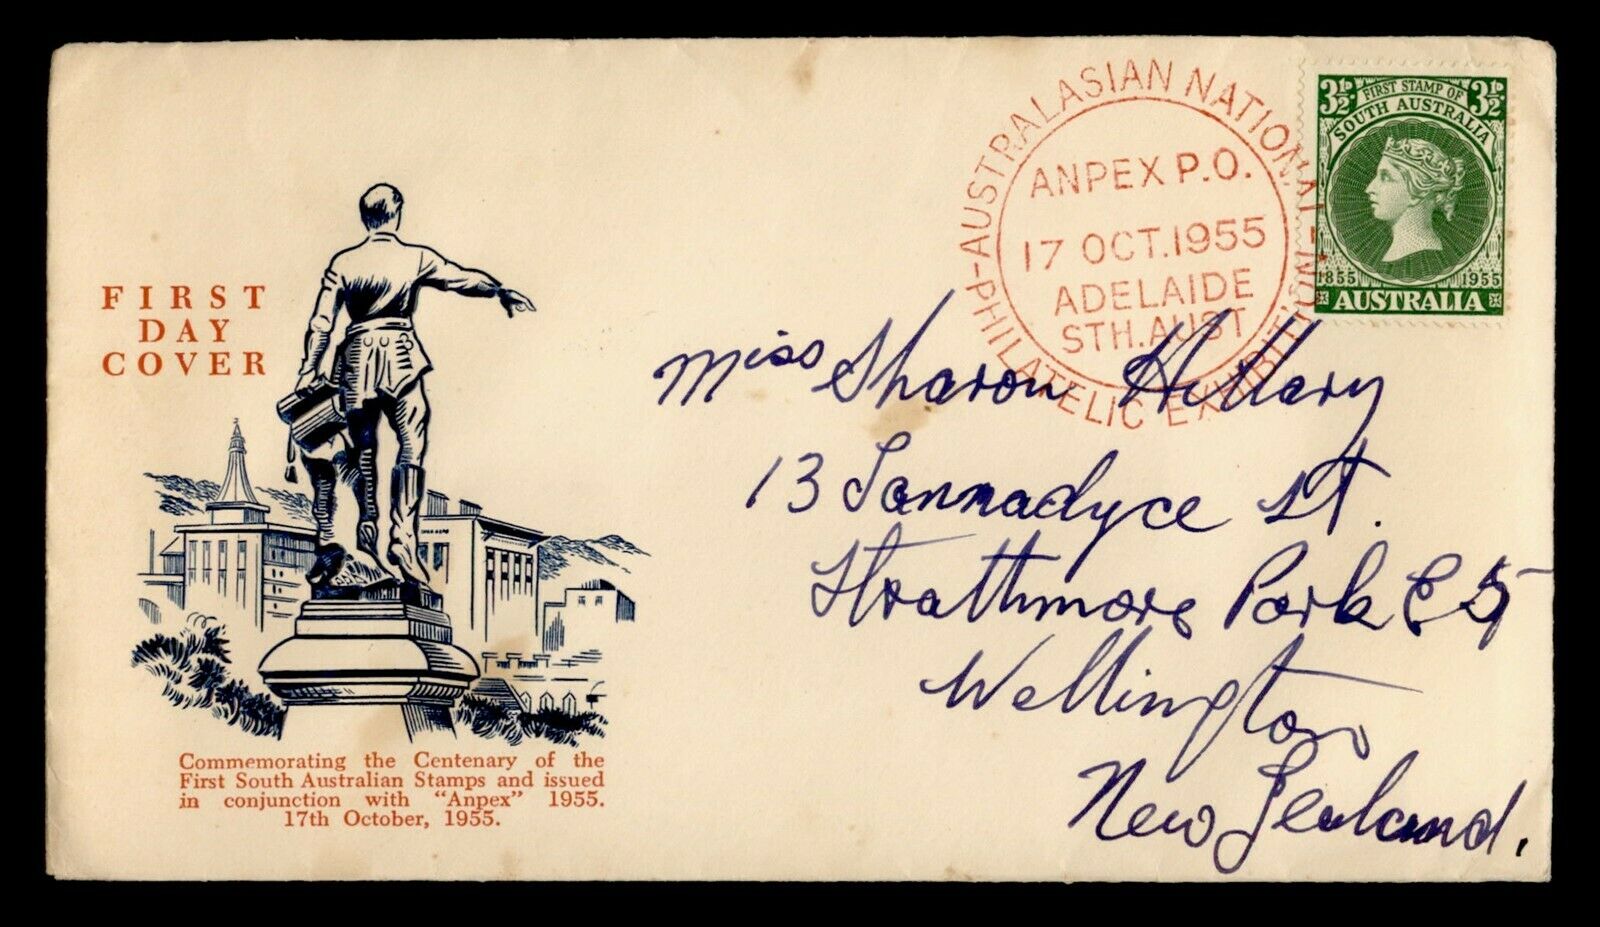 FIRST
DAY
COVER
Commemorating the Centenary of the
First South Australian Stamps and issued
in conjunction with "Anpex" 1955.
17th October, 1955.
AUSTRALASIAN NATIONAL
PHILATELIC EXHIBITION
ANPEX P.O.
17 OCT.1955
ADELAIDE
STH.AUST
3½D 3½D
FIRST STAMP OF
SOUTH AUSTRALIA
1855 1955
AUSTRALIA
Miss Sharon Hillary
13 Tannadyce St.
Strathmore Park E5
Wellington
New Zealand.